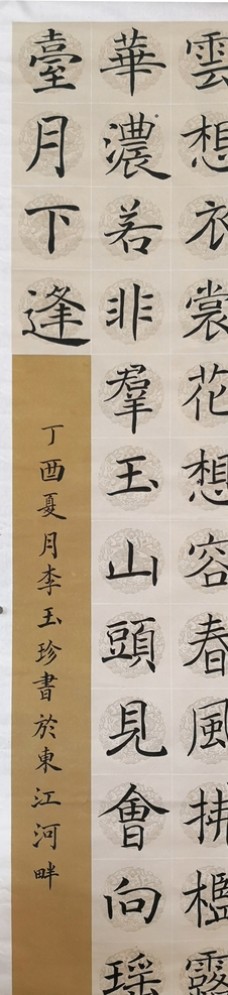 雲想衣裳花想容春風拂檻露
華濃若非羣玉山頭見會向瑤
臺月下逢
丁酉夏月李玉珍書於東江河畔